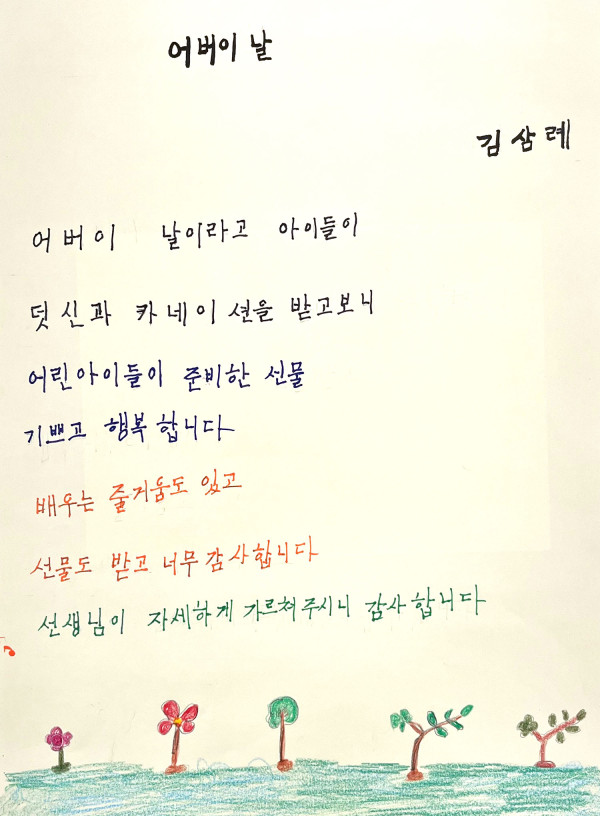 어버이 날
김삼례
어버이 날이라고 아이들이
덧신과 카네이션을 받고보니
어린아이들이 준비한 선물
기쁘고 행복합니다
배우는 줄거움도 있고
선물도 받고 너무 감사합니다
선생님이 자세하게 가르쳐주시니 감사합니다